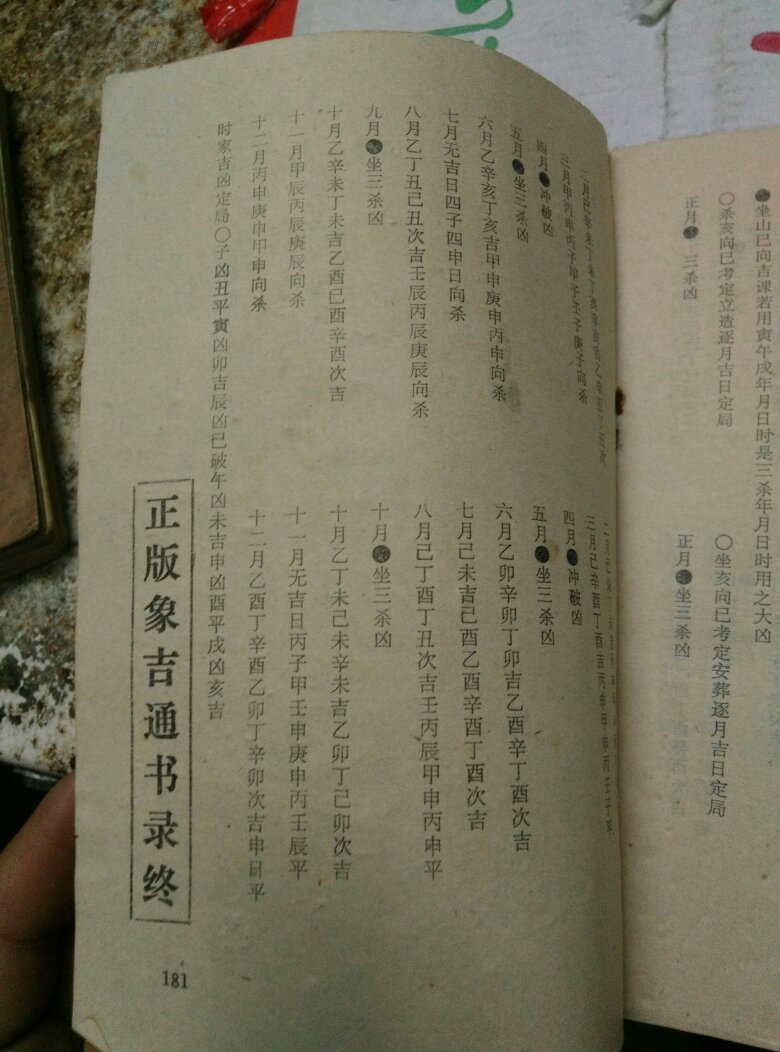 ●坐山巳向吉课若用寅午戌年月日时是三杀年月日时用之大凶
〇杀亥向巳考定立造逐月吉日定局
〇坐亥向巳考定安葬逐月吉日定局
正月● 三杀凶
正月●坐三杀凶
二月巳辛未丁未丁亥辛亥吉乙辛丑丁丑次
三月甲丙申丙子甲子壬子庚子向杀
三月己辛酉丁酉吉丙申甲申丙壬子平
四月●冲破凶
四月●冲破凶
五月●坐三杀凶
五月●坐三杀凶
六月乙辛亥丁亥吉甲申庚申丙申向杀
六月乙卯辛卯丁卯吉乙酉辛丁酉次吉
七月无吉日四子四申日向杀
七月己未吉己酉乙酉辛酉丁酉次吉
八月乙丁丑己丑次吉壬辰丙辰庚辰向杀
八月己丁酉丁丑次吉壬丙辰甲申丙申平
九月●坐三杀凶
十月●坐三杀凶
十月乙辛未丁未吉乙酉巳酉辛酉次吉
十月乙丁未己未辛未吉乙卯丁己卯次吉
十一月甲辰丙辰庚辰向杀
十一月无吉日丙子甲壬申庚申丙壬辰平
十二月丙申庚申甲申向杀
十二月乙酉丁辛酉乙卯丁辛卯次吉申日平
时家吉凶定局〇子凶丑平寅凶卯吉辰凶巳破午凶未吉申凶酉平戌凶亥吉
正版象吉通书录终
181